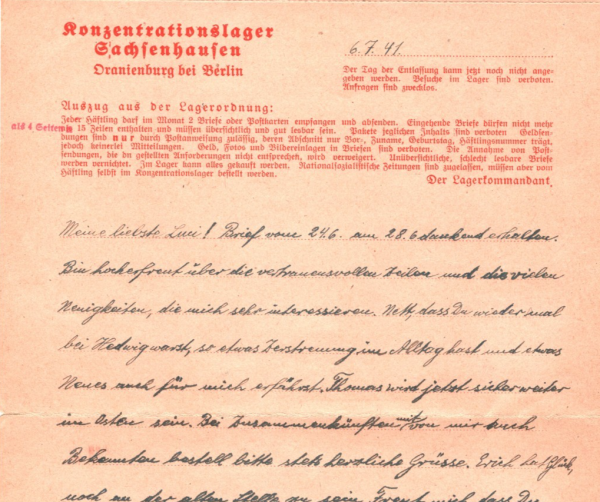 Konzentrationslager
Sachsenhausen
Oranienburg bei Berlin
6.7.41.
Der Tag der Entlassung kann jetzt noch nicht ange-
geben werden. Besuche im Lager sind verboten.
Anfragen sind zwecklos.
Auszug aus der Lagerordnung:
Jeder Häftling darf im Monat 2 Briefe oder Postkarten empfangen und absenden. Eingehende Briefe dürfen nicht mehr
als 4 Seiten à 15 Zeilen enthalten und müssen übersichtlich und gut lesbar sein. Pakete jeglichen Inhalts sind verboten. Geldsen-
dungen sind nur durch Postanweisung zulässig, deren Abschnitt nur Vor-, Zuname, Geburtstag, Häftlingsnummer trägt,
jedoch keinerlei Mitteilungen. Geld, Fotos und Bildereinlagen in Briefen sind verboten. Die Annahme von Post-
sendungen, die den gestellten Anforderungen nicht entsprechen, wird verweigert. Unübersichtliche, schlecht lesbare Briefe
werden vernichtet. Im Lager kann alles gekauft werden. Nationalsozialistische Zeitungen sind zugelassen, müssen aber vom
Häftling selbst im Konzentrationslager bestellt werden.
Der Lagerkommandant
Meine liebste Luci! Brief vom 24.6. am 28.6 dankend erhalten.
Bin hocherfreut über die vertrauensvollen Zeilen und die vielen
Neuigkeiten, die mich sehr interessieren. Nett, dass Du wieder mal
bei Hedwig warst, so etwas Zerstreuung im Alltag hast und etwas
Neues auch für mich erfährst. Thomas wird jetzt sicher weiter
im Osten sein. Bei Zusammenkünften mit von mir auch
Bekannten bestell bitte stets herzliche Grüsse. Erich hat Glück,
noch an der alten Stelle zu sein. Freut mich dass Du